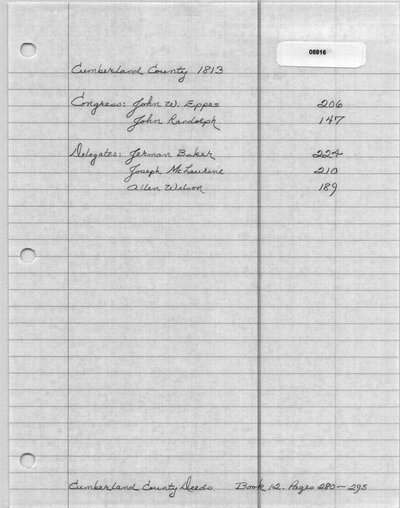 08816
Cumberland County 1813
Congress: John W. Eppes 206
John Randolph 147
Delegates: Jerman Baker 224
Joseph McLaurine 210
Allen Wilson 189
Cumberland County Deeds Book 12. Pages 280-295